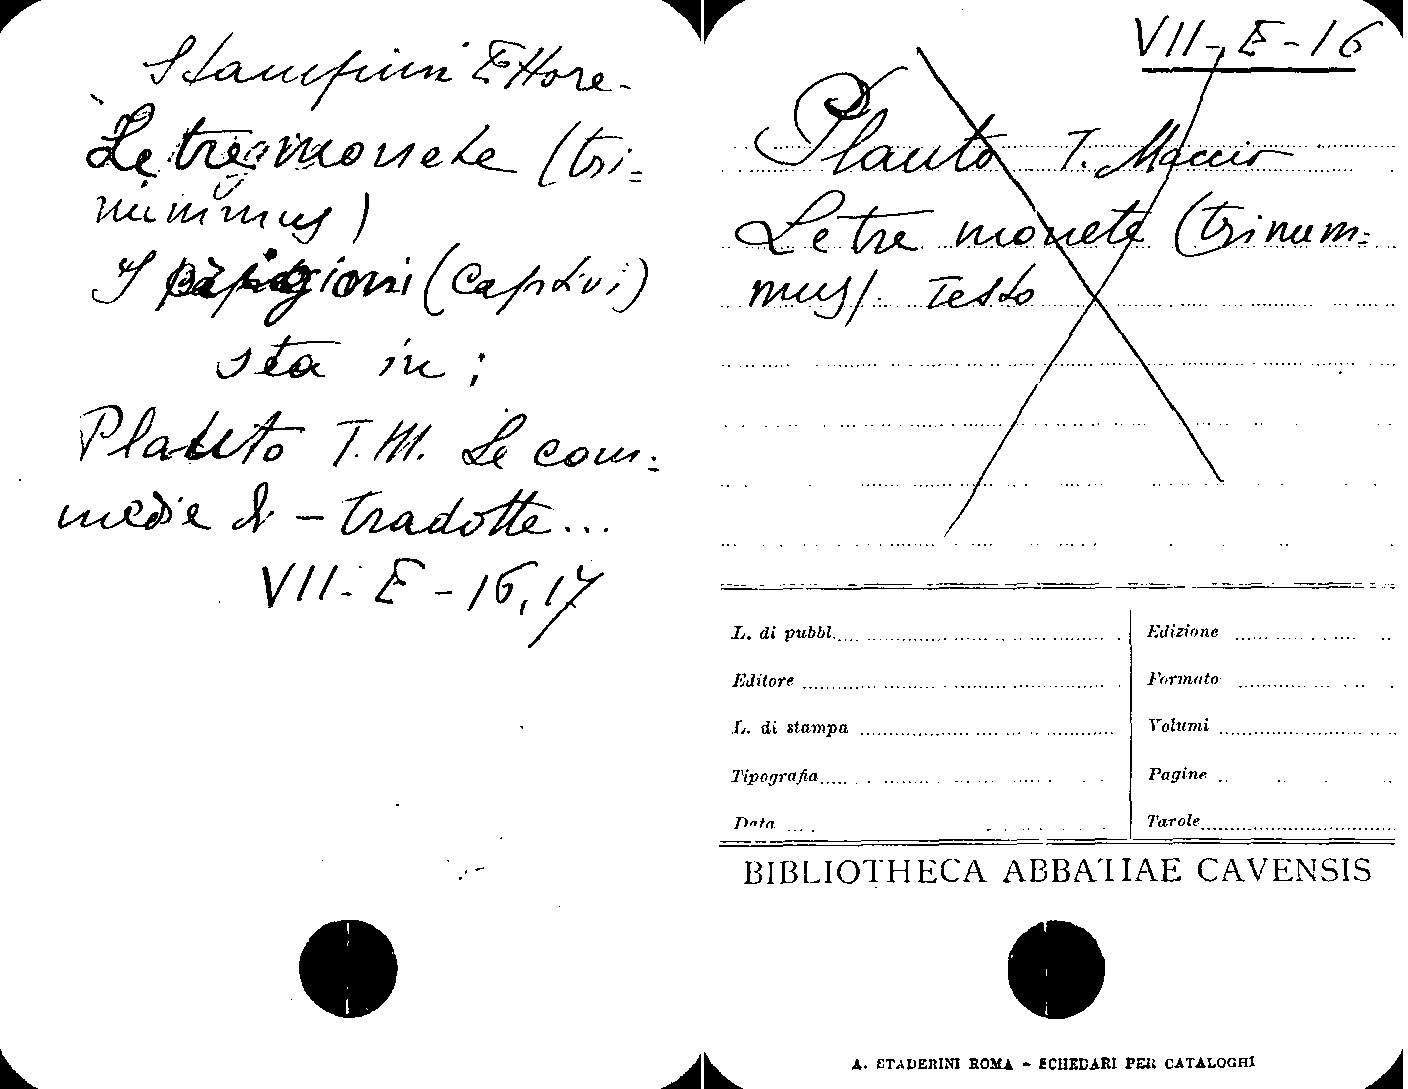 Stampini Ettore.
Le tre monete (tri=
nummus)
I prigioni (Captivi)
sta in:
Plauto T. M. Le com=
medie &- - tradotte...
VII - E - 16, 17
VII - E - 16
Plauto T. Maccio
Le tre monete (trinum=
mus). Testo
L. di pubbl.
Editore
L. di stampa
Tipografia
Data
Edizione
Formato
Volumi
Pagine
Tavole
BIBLIOTHECA ABBATIAE CAVENSIS
A. STADERINI ROMA - SCHEDARI PER CATALOGHI